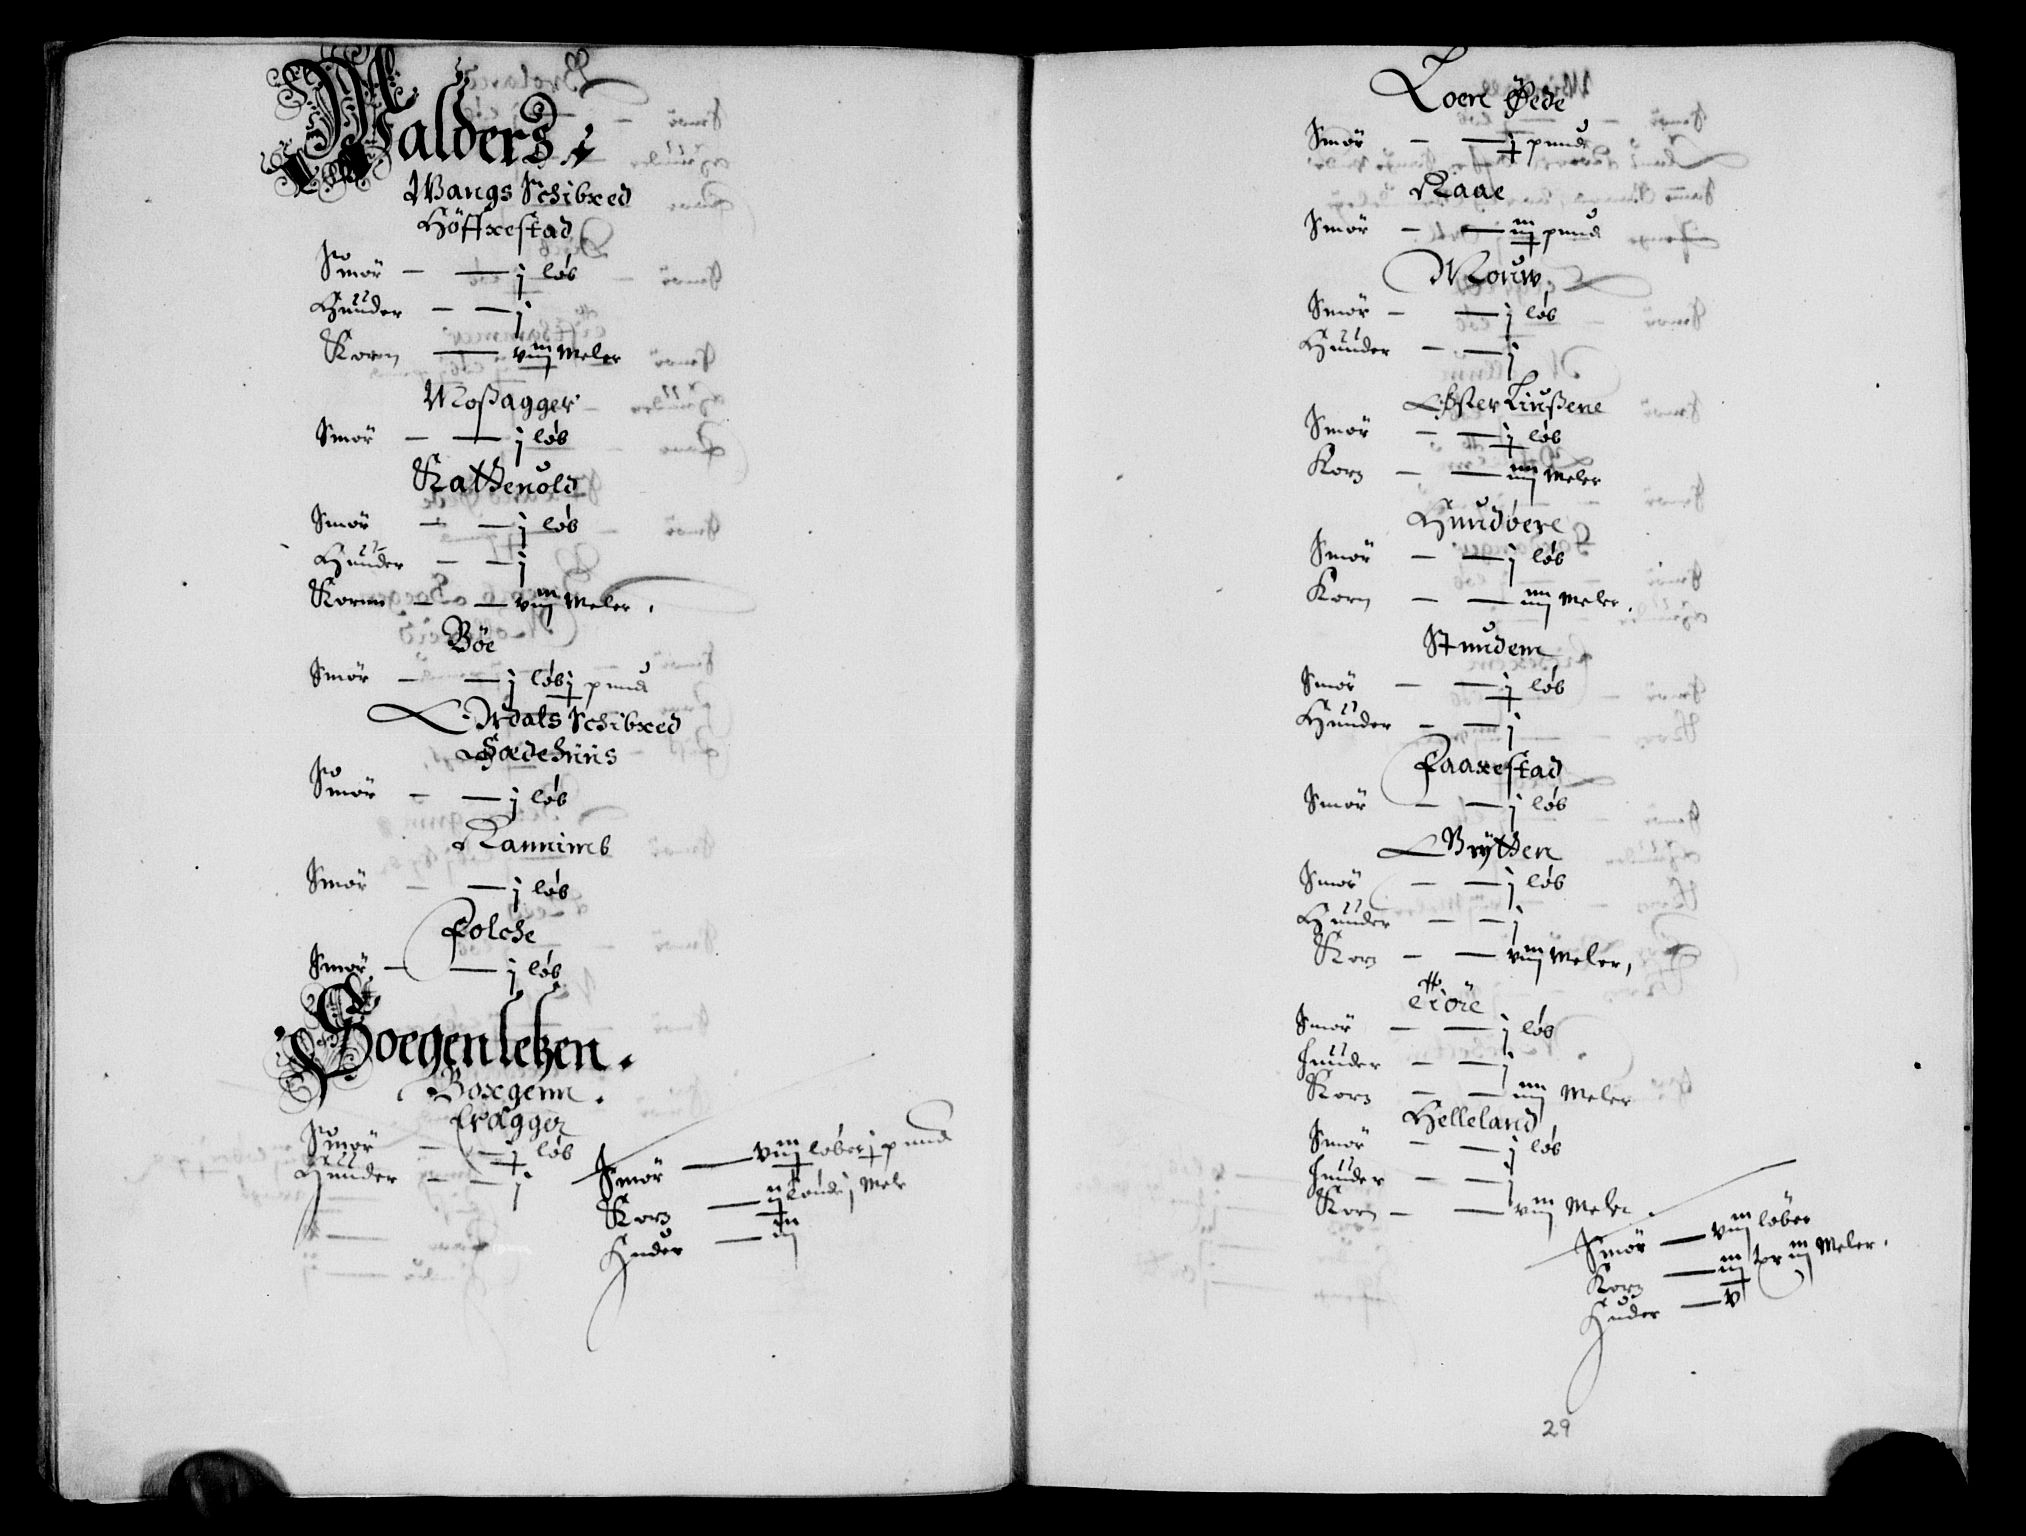 Walders
Wangs Schibred
Höffrestad
Smör — j löb
Huuder — j
Korn — viij Meler
Moßagger
Smör — j löb
Kattevold
Smör — j löb
Huuder — j
Korn — viij Meler
Böe
Smör — j löb j pund
Ordals Schibred
Gaedehuus
Smör — j löb
Rannims
Smör — j löb
Folche
Smör — j löb
Boegenlehen
Borgenn
Eragger
Smör — j löb
Huuder — j
Smör — viij löber j pund
Korn — Meler
Huder — iij
Loere Öede
Smör — j pund
Raae
Smör — iij pund
Mouw
Smör — j löb
Huuder — j
Öffter Liußene
Smör — j löb
Korn — iiij Meler
Hundöere
Smör — j löb
Korn — iiij Meler
Studem
Smör — j löb
Huuder — j
Faarestad
Smör — j löb
Brÿtten
Smör — j löb
Huuder — j
Korn — viij Meler
Smör — j löb
Huuder — j
Korn — iiij Meler
Helleland
Smör — j löb
Huuder — j
Korn — viij Meler
Smör — viij löber
Korn — iij Meler
Huder — v
29